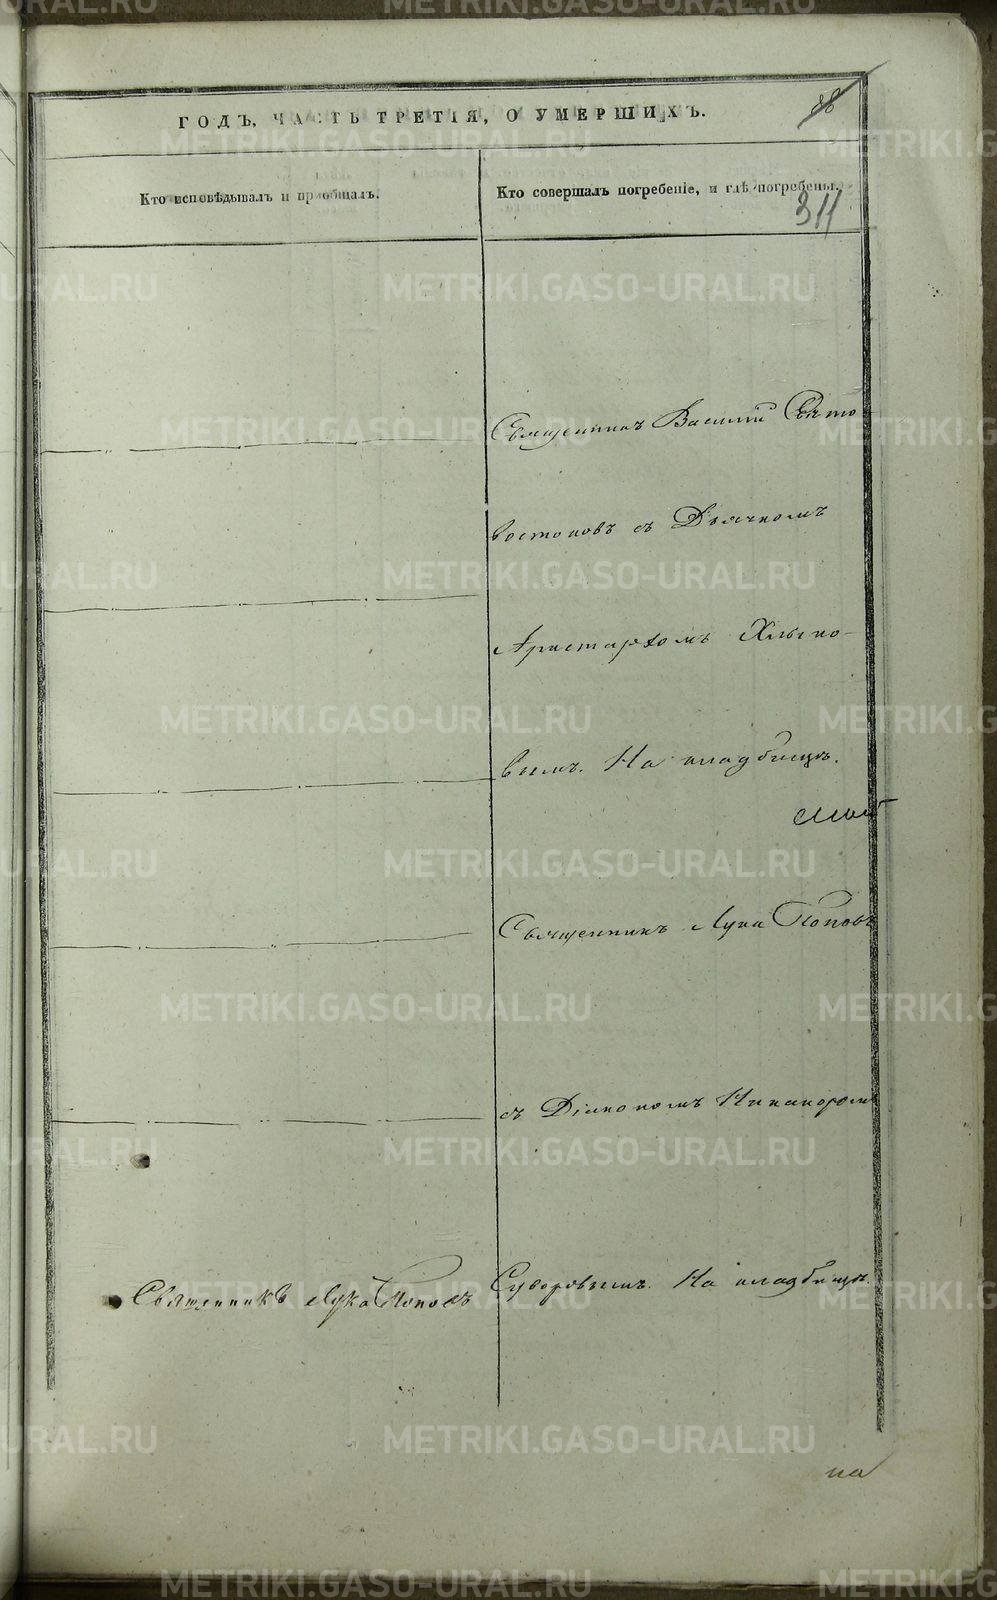 88
ГОДЪ, ЧАСТЬ ТРЕТІЯ, О УМЕРШИХЪ.
Кто исповѣдывалъ и пріобщалъ.
Кто совершалъ погребеніе, и гдѣ погребены.
311
Священникъ Василій
востоковъ съ Дьячкомъ
Аристархомъ Хлыно-
вымъ. На кладбищѣ.
Священникъ Лука Поповъ
съ Діакономъ Никаноромъ
Суворовымъ. На кладбищѣ.
Священникъ Лука Поповъ
на
METRIKI.GASO-URAL.RU